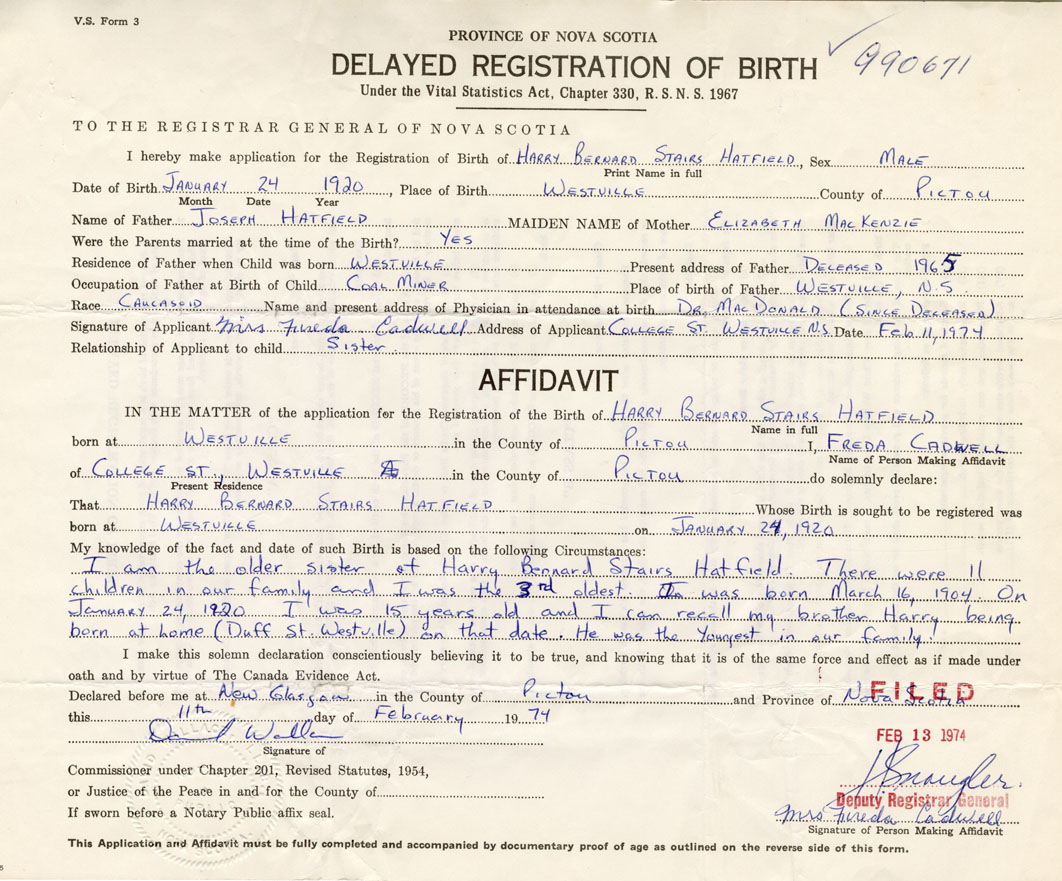 V.S. Form 3
PROVINCE OF NOVA SCOTIA
DELAYED REGISTRATION OF BIRTH
990671
Under the Vital Statistics Act, Chapter 330, R.S.N.S. 1967
TO THE REGISTRAR GENERAL OF NOVA SCOTIA
I hereby make application for the Registration of Birth of HARRY BERNARD STAIRS HATFIELD, Sex MALE
Print Name in full
Date of Birth JANUARY 24 1920, Place of Birth WESTVILLE County of PICTOU
Month Date Year
Name of Father JOSEPH HATFIELD MAIDEN NAME of Mother ELIZABETH MACKENZIE
Were the Parents married at the time of the Birth? YES
Residence of Father when Child was born WESTVILLE Present address of Father DECEASED 1965
Occupation of Father at Birth of Child COAL MINER Place of birth of Father WESTVILLE, N.S.
Race CAUCASOID Name and present address of Physician in attendance at birth DR. MACDONALD (SINCE DECEASED)
Signature of Applicant Mrs Freda Cadwell Address of Applicant COLLEGE ST. WESTVILLE N.S. Date Feb. 11, 1974
Relationship of Applicant to child Sister
AFFIDAVIT
IN THE MATTER of the application for the Registration of the Birth of HARRY BERNARD STAIRS HATFIELD
Name in full
born at WESTVILLE in the County of PICTOU I, FREDA CADWELL
Name of Person Making Affidavit
of COLLEGE ST., WESTVILLE in the County of PICTOU do solemnly declare:
Present Residence
That HARRY BERNARD STAIRS HATFIELD Whose Birth is sought to be registered was
born at WESTVILLE on JANUARY 24, 1920
My knowledge of the fact and date of such Birth is based on the following Circumstances:
I am the older sister of Harry Bernard Stairs Hatfield. There were 11
children in our family and I was the 3rd oldest. I was born March 16, 1904. On
January 24, 1920 I was 15 years old and I can recall my brother Harry being
born at home (Duff St. Westville) on that date. He was the Youngest in our family!
I make this solemn declaration conscientiously believing it to be true, and knowing that it is of the same force and effect as if made under
oath and by virtue of The Canada Evidence Act.
Declared before me at New Glasgow in the County of Pictou and Province of Nova Scotia
FILED
this 11th day of February 1974
FEB 13 1974
Signature of
Commissioner under Chapter 201, Revised Statutes, 1954,
or Justice of the Peace in and for the County of
Deputy Registrar General
If sworn before a Notary Public affix seal.
Mrs Freda Cadwell
Signature of Person Making Affidavit
This Application and Affidavit must be fully completed and accompanied by documentary proof of age as outlined on the reverse side of this form.